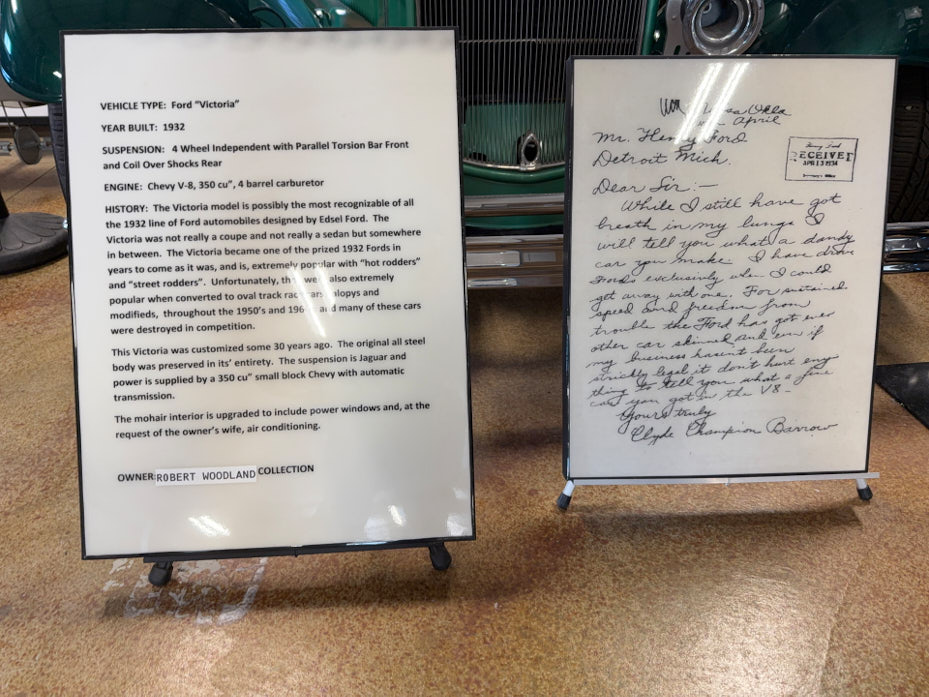 VEHICLE TYPE: Ford "Victoria"
YEAR BUILT: 1932
SUSPENSION: 4 Wheel Independent with Parallel Torsion Bar Front
and Coil Over Shocks Rear
ENGINE: Chevy V-8, 350 cu", 4 barrel carburetor
HISTORY: The Victoria model is possibly the most recognizable of all
the 1932 line of Ford automobiles designed by Edsel Ford. The
Victoria was not really a coupe and not really a sedan but somewhere
in between. The Victoria became one of the prized 1932 Fords in
years to come as it was, and is, extremely popular with "hot rodders"
and "street rodders". Unfortunately, they were also extremely
popular when converted to oval track race cars, jalopys and
modifieds, throughout the 1950's and 1960's and many of these cars
were destroyed in competition.
This Victoria was customized some 30 years ago. The original all steel
body was preserved in its' entirety. The suspension is Jaguar and
power is supplied by a 350 cu" small block Chevy with automatic
transmission.
The mohair interior is upgraded to include power windows and, at the
request of the owner's wife, air conditioning.
OWNER ROBERT WOODLAND COLLECTION
Okla
April
Mr. Henry Ford
Detroit Mich.
Henry Ford
RECEIVED
APR 13 1934
Dear Sir:—
While I still have got
breath in my lungs I
will tell you what a dandy
car you make. I have drove
Fords exclusively when I could
get away with one. For sustained
speed and freedom from
trouble the Ford has got ever
other car skinned and even if
my business hasent been
strickly legal it don't hurt eny
thing to tell you what a fine
car you got in the V8—
Yours truly
Clyde Champion Barrow